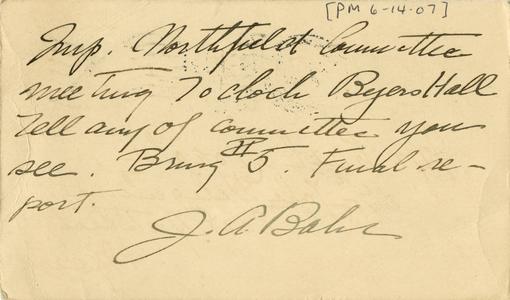 [PM 6-14-07]
Imp. Northfield Committee
meeting 7 o clock Byers Hall
Tell any of committee you
see. Bring #5. Final re-
port.
J. A.